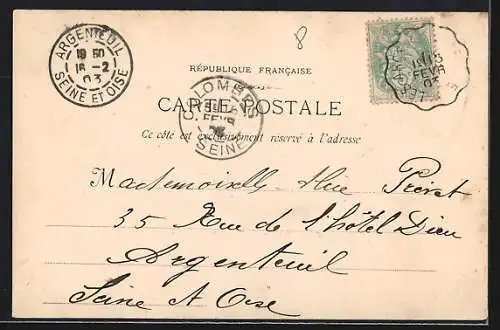 8
ARGENTEUIL
18 50
16 -2
03
SEINE ET OISE
RÉPUBLIQUE FRANÇAISE
COLOMBES
FEVR
SEINE
CARTE POSTALE
Ce côté est exclusivement réservé à l'adresse
FEVR
03
Mademoiselle Prévet
35 Rue de l'hôtel Dieu
Argenteuil
Seine et Oise